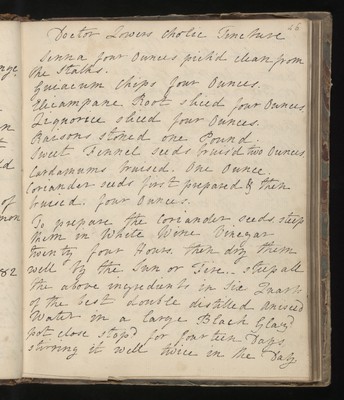 26
Doctor Lowers Cholic Tincture
Senna four Ounces pick'd clean from
the Stalks.
Gueacum Chips four Ounces.
Elicampane Root sliced four Ounces
Liquorice sliced four Ounces.
Raisons stoned one Pound.
Sweet Fennel seeds bruis'd two Ounces
Cardamums bruised. One Ounce
Coriander seeds first prepared & then
bruised. four Ounces.
To prepare the Coriander seeds steep
them in White Wine Vinegar
twenty four Hours. then dry them
well by the Sun or Fire.. steep all
the above ingredients in Six Quarts
of the best double distilled Aniseed
Water in a large Black Glaz'd
pot close stop'd for fourteen Days,
stirring it well twice in the Day